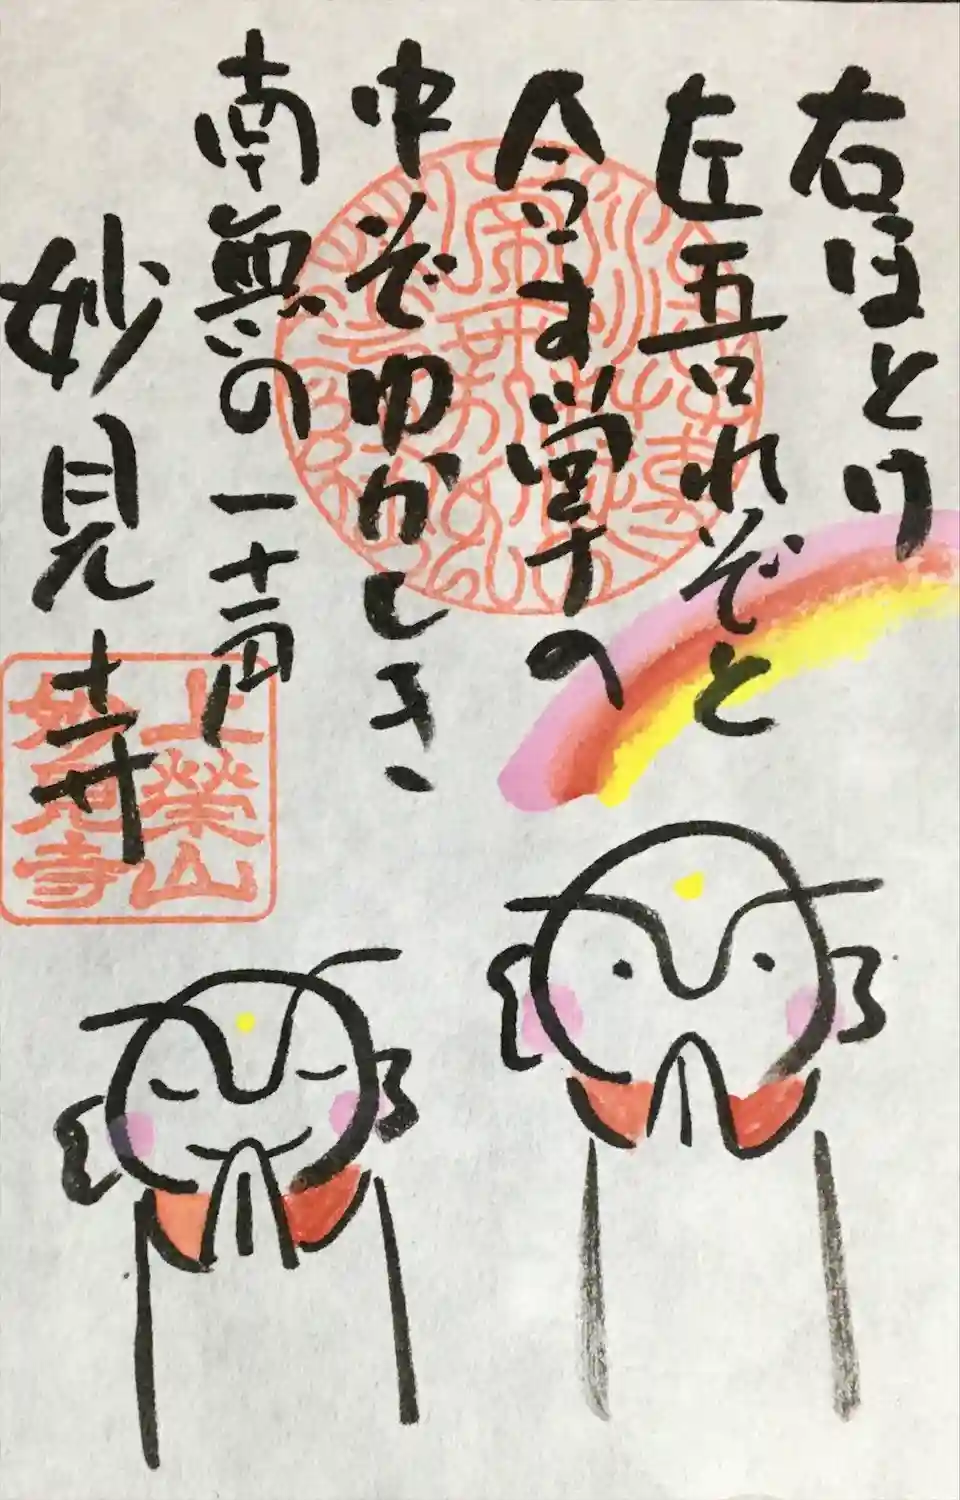 右ほとけ
左吾れぞと
合す掌の
中ぞゆかしき
南無の一声
妙見寺
上榮山
妙見寺